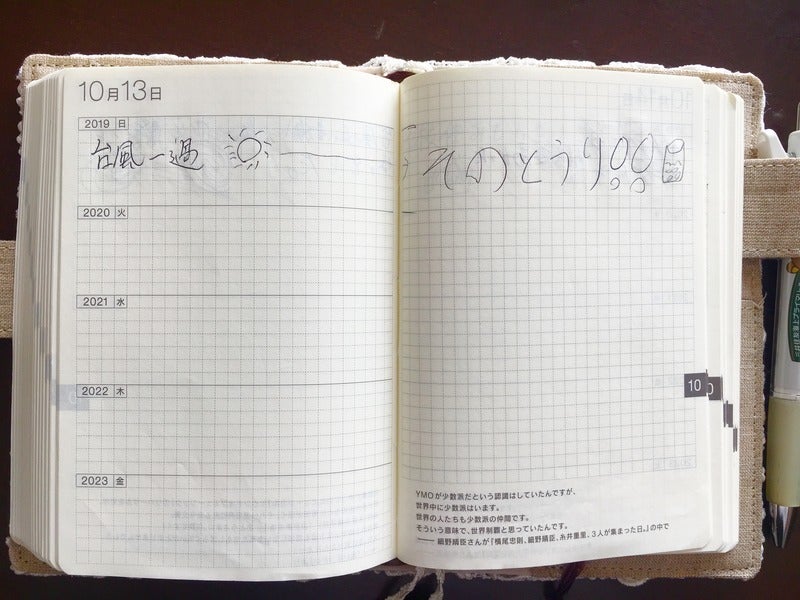 10月13日
2019 日
台風一過
そのとうり!!
2020 火
2021 水
2022 木
2023 金
10
YMOが少数派だという認識はしていたんですが、
世界中に少数派はいます。
世界の人たちも少数派の仲間です。
そういう意味で、世界制覇と思っていたんです。
——細野晴臣さんが『横尾忠則、細野晴臣、糸井重里、3人が集まった日。』の中で